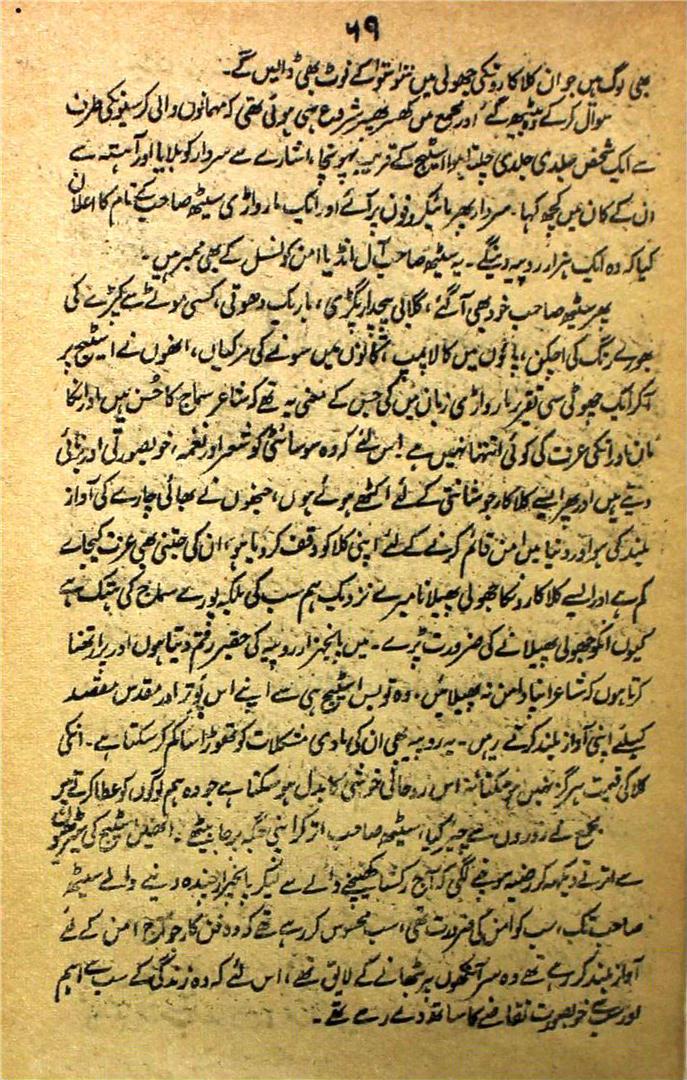 ۶۹
بھی لوگ ہیں جو ان کلاکارونکی جھولی میں سَو سَو کے نوٹ بھی ڈالیں گے۔
سوال کرکے وہ بیٹھ گئے اور مجمع میں کھسر پھسر شروع ہی ہوئی تھی کہ مہمانوں والی کرسیونکی طرف
سے ایک شخص جلدی جلدی چلتا ہوا اسٹیج کے قریب پہونچا، اشارے سے سردار کو بلایا اور آہستہ سے
ان کے کان میں کچھ کہا۔ سردار پھر مائیکروفون پر آئے اور ایک مارواڑی سیٹھ صاحب کے نام کا اعلان
کیا کہ وہ ایک ہزار روپیہ دینگے۔ یہ سیٹھ صاحب آل انڈیا امن کونسل کے بھی ممبر ہیں۔
پھر سیٹھ صاحب خود بھی آگئے، گلابی پیچدار پگڑی، باریک دھوتی، کسی موٹے سے کپڑے کی
بھورے رنگ کی اچکن، پاؤں میں کالا پمپ، کانوں میں سونے کی مرکیاں، انھوں نے اسٹیج پر
آکر ایک چھوٹی سی تقریر مارواڑی زبان میں کی جس کے معنی یہ تھے کہ شاعر سماج کا حُسن ہیں اور انکا
مان اور انکی عزت کی کوئی انتہا نہیں ہے اس لئے کہ وہ سوسائٹی کو شعر اور نغمہ، خوبصورتی اور
دیتے ہیں اور پھر ایسے کلاکار جو شانتی کے لئے اکٹھے ہوئے ہوں، جنھوں نے بھائی چارے کی آواز
بلند کی ہو اور دنیا میں امن قائم کرنے کے لئے اپنی کلا کو وقف کردیا ہو، ان کی جتنی بھی عزت کیجاے
کم ہے اور ایسے کلاکارونکا جھولی پھیلانا میرے نزدیک ہم سب کی بلکہ پورے سماج کی ہتک ہے
کیوں انکو جھولی پھیلانے کی ضرورت پڑے۔ میں پانچہزار روپیہ کی حقیر رقم دیتا ہوں اور پرارتھنا
کرتا ہوں کہ شاعر اپنا دامن نہ پھیلائیں۔ وہ تو بس اسٹیج ہی سے اپنے اس پوتر اور مقدس مقصد
کیلئے اپنی آواز بلند کرتے رہیں۔ یہ روپیہ بھی ان کی مادی مشکلات کو تھوڑا سا کم کرسکتا ہے۔ انکی
کلا کی قیمت ہرگز نہیں ہوسکتا نہ اس روحانی خوشی کا بدل ہوسکتا ہے جو وہ ہم لوگوں کو عطا کرتے ہیں
مجمع نے زوروں سے چیر کیا، سیٹھ صاحب اتر کر اپنی جگہ پر جا بیٹھے۔ انھیں اسٹیج کی سیڑھیوں
سے اترتے دیکھ کر رضیہ سوچنے لگی کہ آج رکشا کھینچنے والے سے لیکر پانچہزار چندہ دینے والے سیٹھ
صاحب تک، سب کو امن کی ضرورت تھی، سب محسوس کررہے تھے کہ وہ فن کار جو آج امن کے لئے
آواز بلند کر رہے تھے وہ سر آنکھوں پر بٹھانے کے لایق تھے، اس لئے کہ وہ زندگی کے سب سے اہم
اور سب سے خوبصورت تقاضے کا ساتھ دے رہے تھے۔